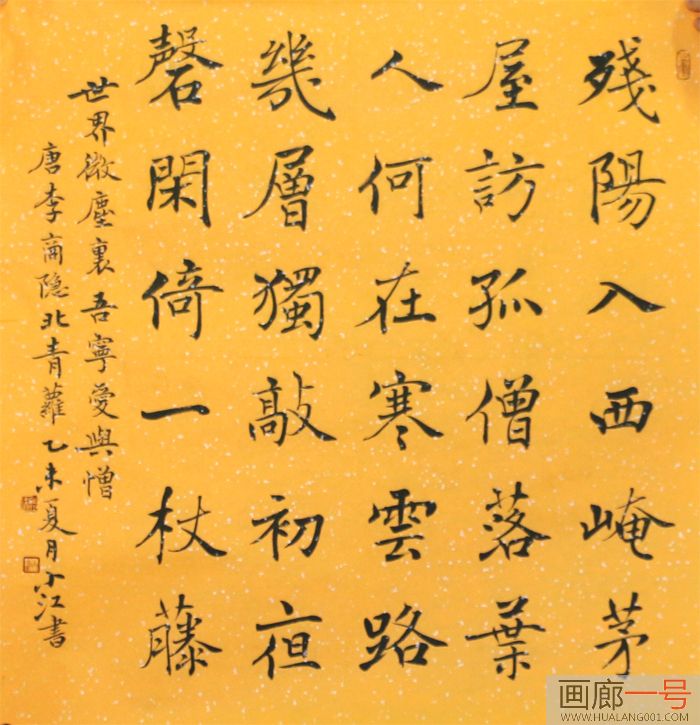 殘陽入西崦茅
屋訪孤僧落葉
人何在寒雲路
幾層獨敲初夜
磬閑倚一杖藤
世界微塵裏吾寧愛與憎
唐李商隐北青蘿乙未夏月小江書
画廊一号
WWW.HUALANG001.COM